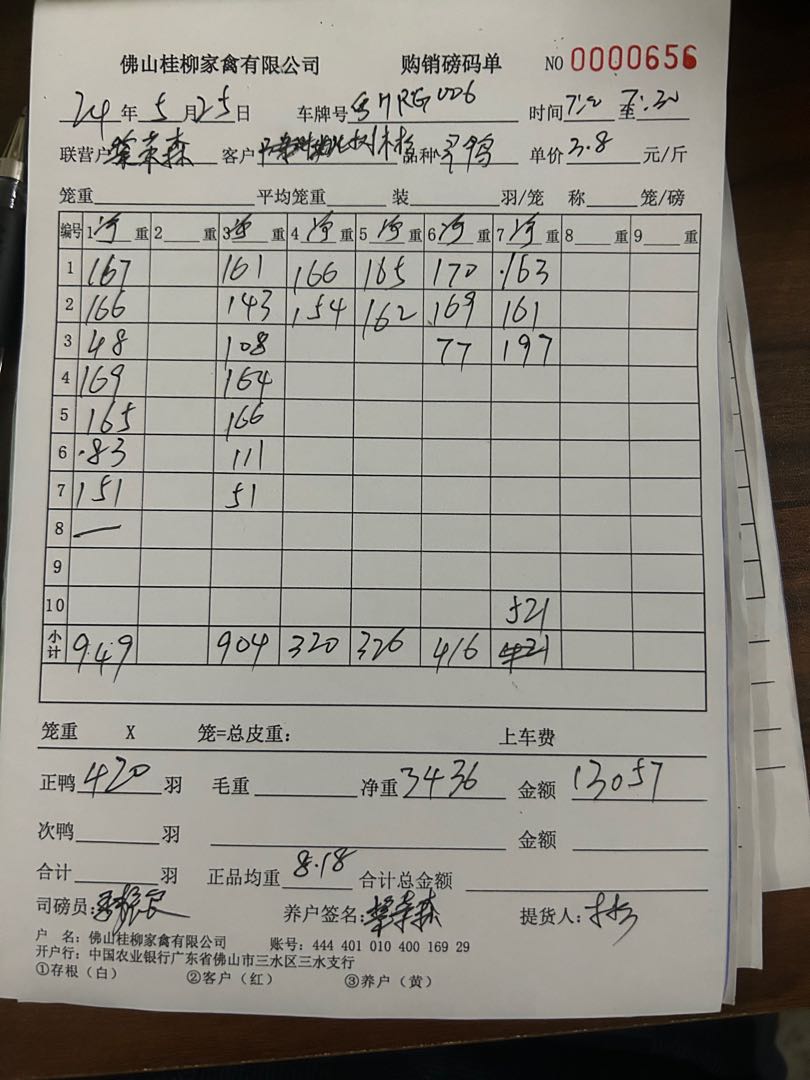 佛山桂柳家禽有限公司 购销磅码单 NO 0000656
24年5月25日 车牌号 006 时间 至
联营户 森 客户 品种 鸭 单价3.8元/斤
笼重 平均笼重 装 羽/笼 称 笼/磅
编号 1净重 2 重 3净重 4净重 5净重 6净重 7净重 8 重 9 重
1 167 161 166 165 170 163
2 166 143 154 162 169 161
3 48 108 77 197
4 169 164
5 165 166
6 83 111
7 151 51
8 —
9
10 521
小计 949 904 320 326 416
笼重 X 笼=总皮重: 上车费
正鸭420羽 毛重 净重3436 金额13057
次鸭 羽 金额
合计 羽 正品均重8.18 合计总金额
司磅员: 养户签名: 森 提货人:
户 名: 佛山桂柳家禽有限公司 账号: 444 401 010 400 169 29
开户行: 中国农业银行广东省佛山市三水区三水支行
①存根(白) ②客户(红) ③养户(黄)